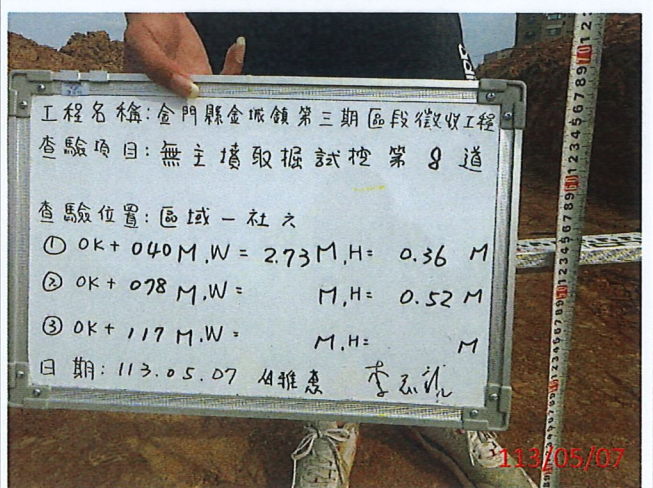 工程名稱:金門縣金城鎮第三期區段徵收工程
查驗項目:無主墳取掘試挖第8道
查驗位置:區域一社六
① 0K+040M,W=2.73M,H=0.36M
② 0K+078M,W= M,H=0.52M
③ 0K+117M,W= M,H= M
日期:113.05.07 雅惠 李
113/05/07